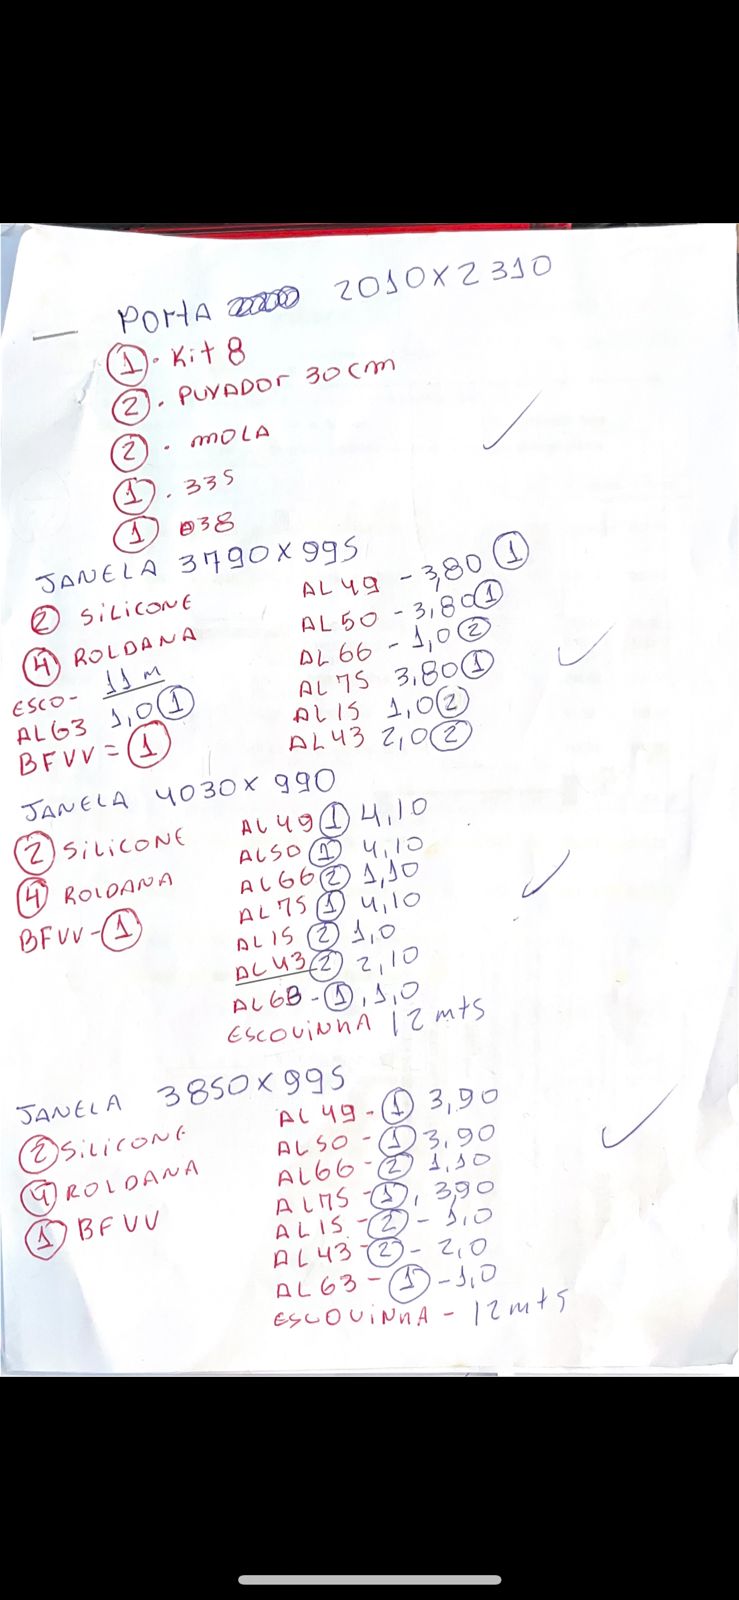 PORTA 2010X2310
1 . Kit 8
2 . PUXADOR 30cm
2 . MOLA
1 . 335
1 038
JANELA 3790X995
2 SILICONE
4 ROLDANA
ESCO- 11m
AL63 1,0 1
BFVV = 1
AL49 - 3,80 1
AL50 - 3,80 1
AL66 - 1,0 2
AL75 3,80 1
AL15 1,0 2
AL43 2,0 2
JANELA 4030X990
2 SILICONE
4 ROLDANA
BFVV - 1
AL49 1 4,10
AL50 1 4,10
AL66 2 1,10
AL75 1 4,10
AL15 2 1,0
AL43 2 2,10
AL63 - 1, 1,0
ESCOVINHA 12mts
JANELA 3850X995
2 SILICONE
4 ROLDANA
1 BFVV
AL49 - 1 3,90
AL50 - 1 3,90
AL66 - 2 1,10
AL75 - 1, 3,90
AL15 - 2 - 1,0
AL43 - 2 - 2,0
AL63 - 1 - 1,0
ESCOVINHA - 12mts